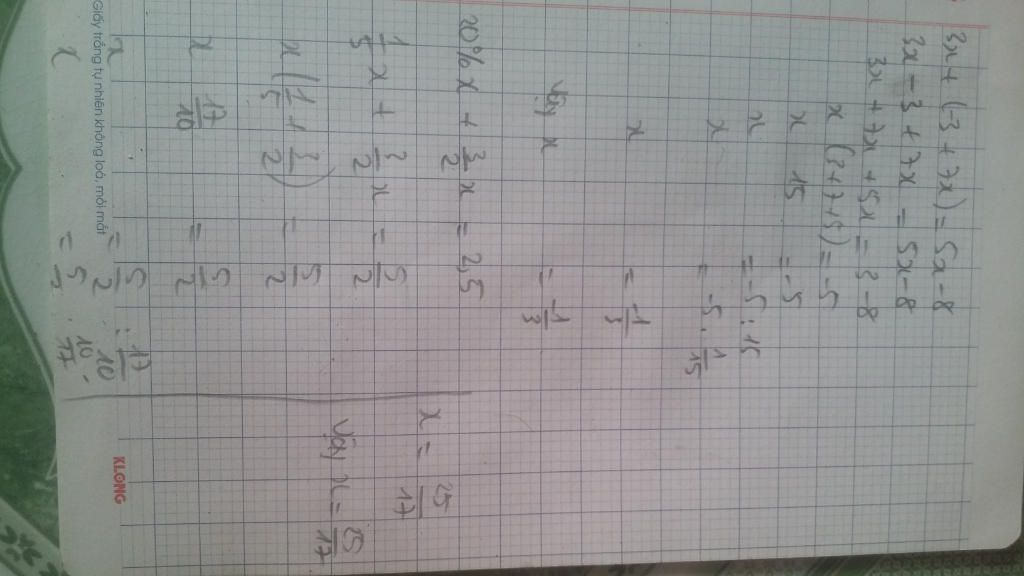 3x + (-3 + 7x) = 5x - 8
3x - 3 + 7x = 5x - 8
3x + 7x + 5x = 3 - 8
x (3 + 7 + 5) = -5
x 15 = -5
x = -5 : 15
x = -5 . 1/15
x = -1/3
Vậy x = -1/3
20% x + 3/2 x = 2,5
1/5 x + 3/2 x = 5/2
x (1/5 + 3/2) = 5/2
x 17/10 = 5/2
x = 5/2 : 17/10
x = 5/2 . 10/17
x = 25/17
Vậy x = 25/17
Giấy trắng tự nhiên không loá, mỏi mắt
KLONG